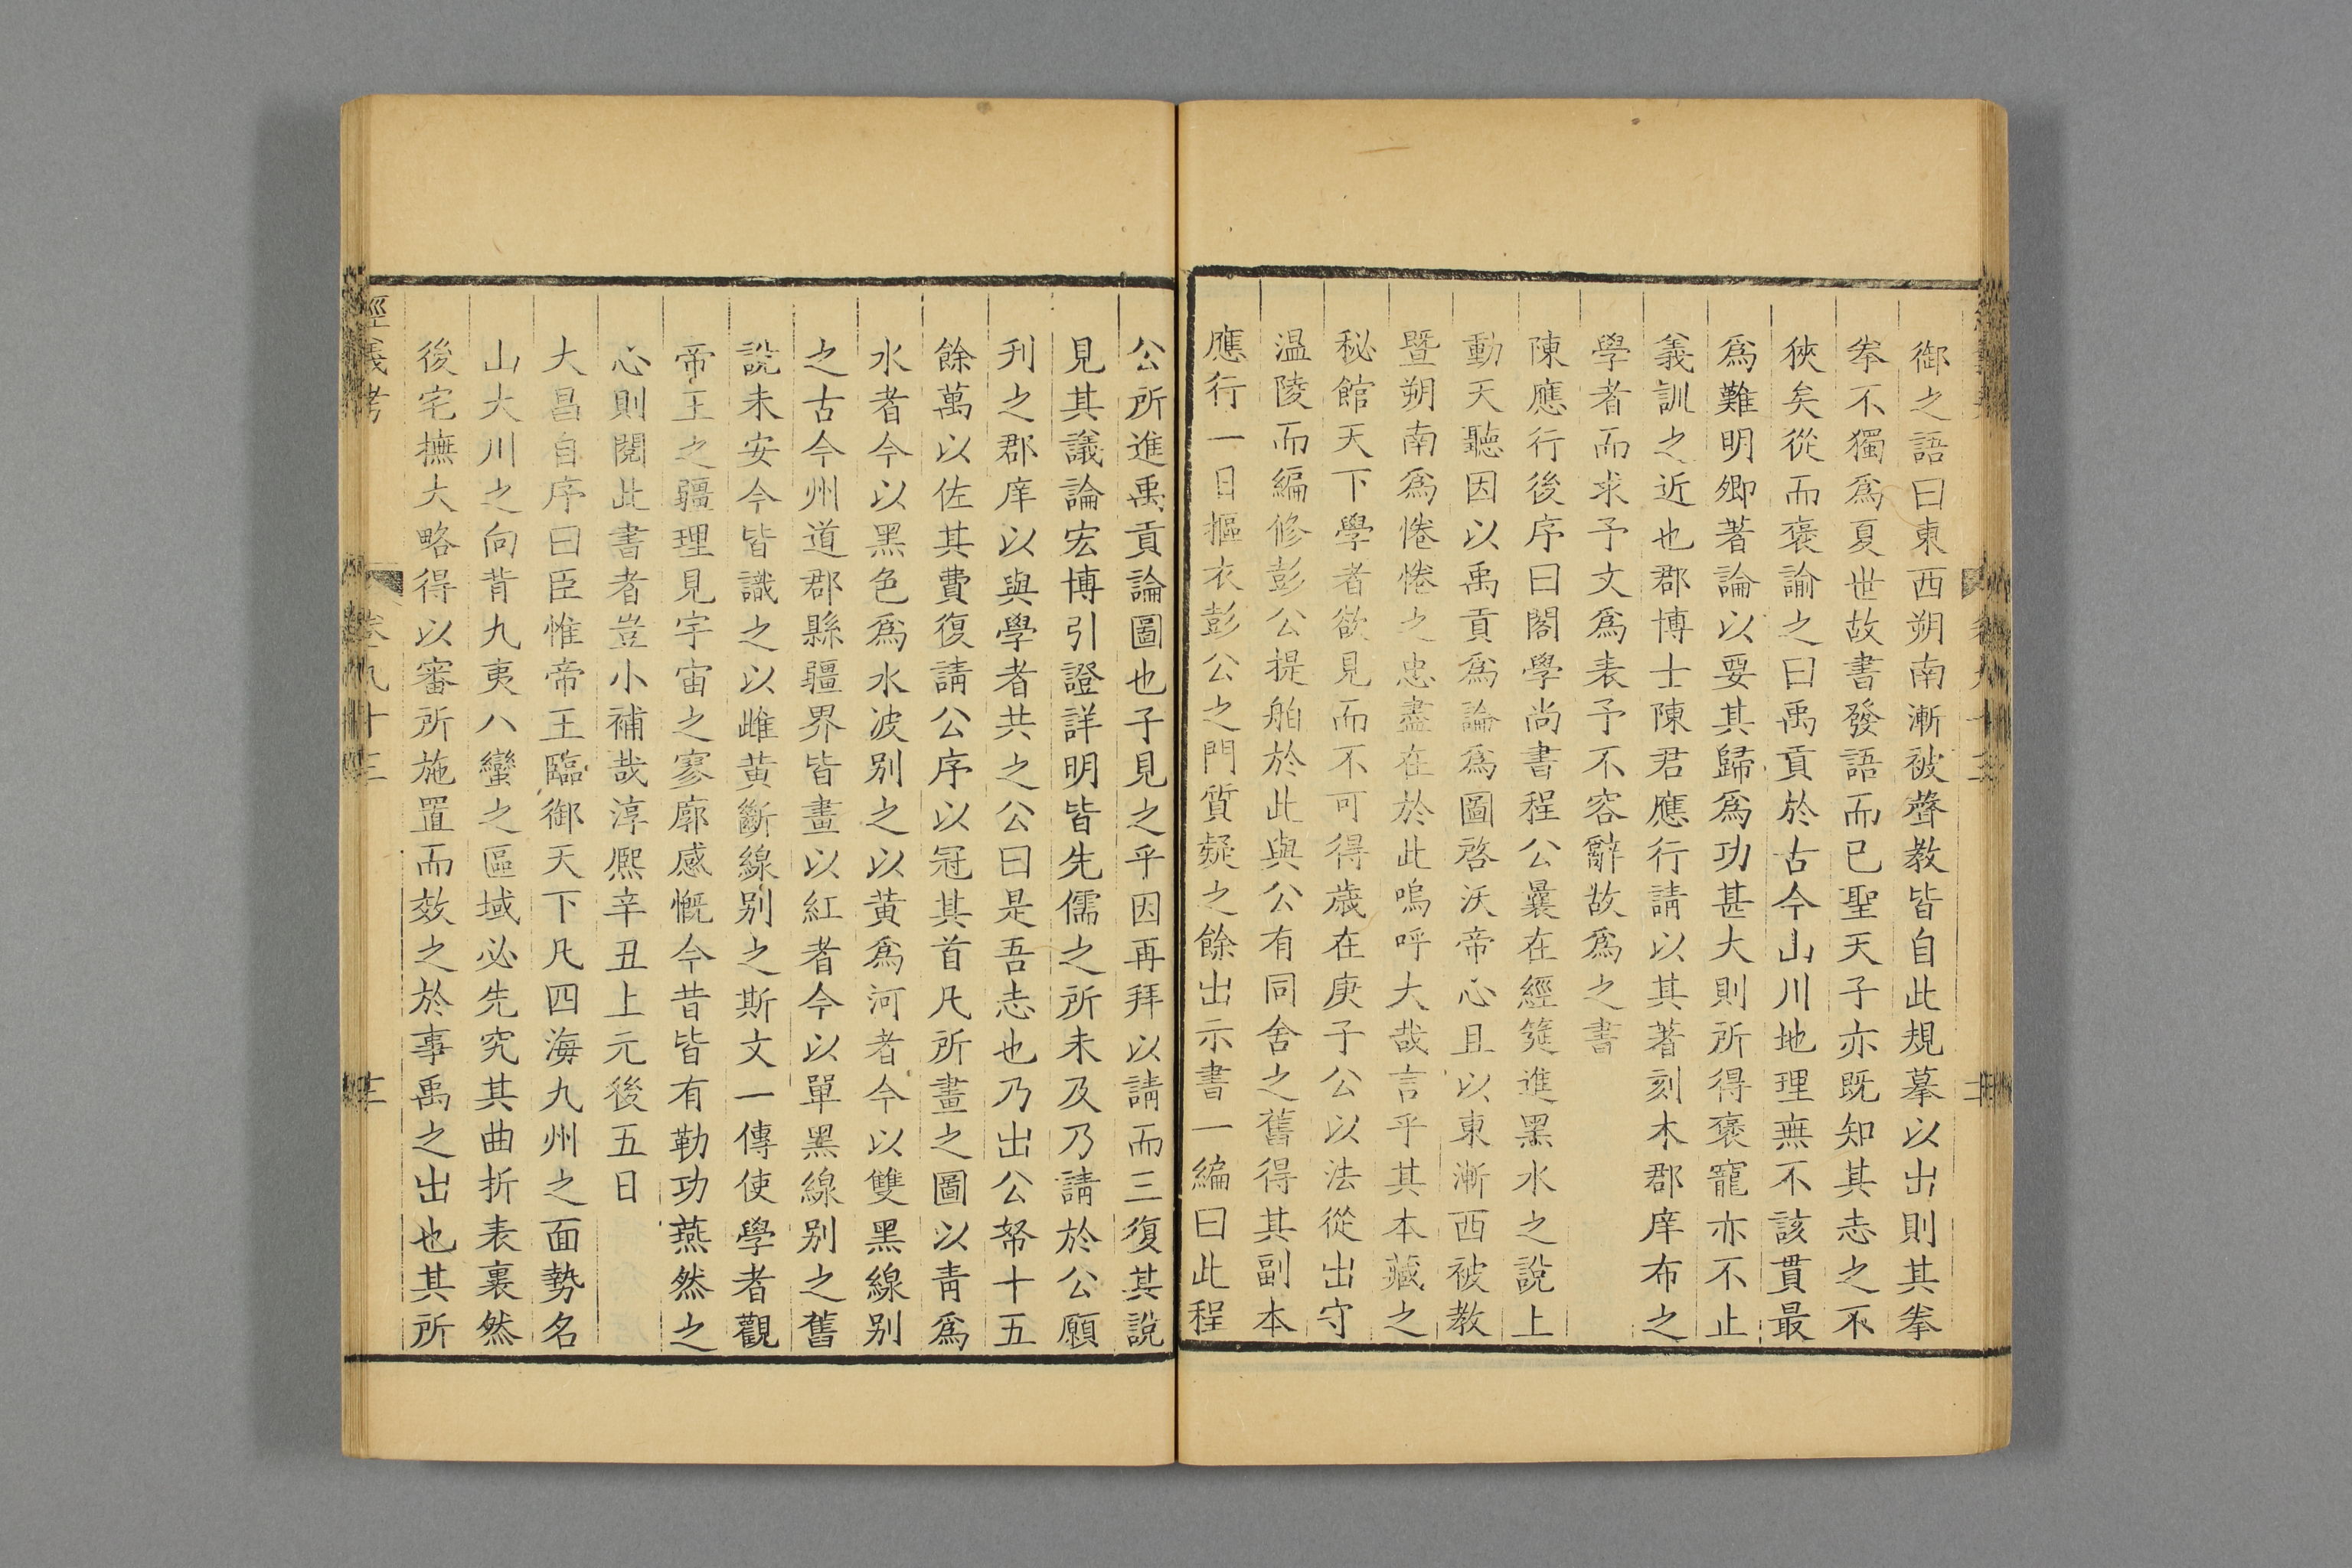 御之語曰東西朔南漸被聲教皆自此規摹以出則其拳
拳不獨爲夏世故書發語而已聖天子亦既知其志之不
狹矣從而褒諭之曰禹貢於古今山川地理無不該貫最
爲難明卿著論以要其歸爲功甚大則所得褒寵亦不止
義訓之近也郡博士陳君應行請以其著刻木郡庠布之
學者而求予文爲表予不容辭故爲之書
陳應行後序曰閣學尚書程公曩在經筵進黑水之說上
動天聽因以禹貢爲論爲圖啓沃帝心且以東漸西被教
暨朔南爲惓惓之忠盡在於此嗚呼大哉言乎其本藏之
秘館天下學者欲見而不可得歲在庚子公以法從出守
温陵而編修彭公提舶於此與公有同舍之舊得其副本
應行一日摳衣彭公之門質疑之餘出示書一編曰此程
公所進禹貢論圖也子見之乎因再拜以請而三復其說
見其議論宏博引證詳明皆先儒之所未及乃請於公願
刋之郡庠以與學者共之公曰是吾志也乃出公帑十五
餘萬以佐其費復請公序以冠其首凡所畫之圖以青爲
水者今以黑色爲水波别之以黄爲河者今以雙黑線别
之古今州道郡縣疆界皆畫以紅者今以單黑線别之舊
說未安今皆識之以雌黄斷線别之斯文一傳使學者觀
帝王之疆理見宇宙之寥廓感慨今昔皆有勒功燕然之
心則閱此書者豈小補哉淳熙辛丑上元後五日
大昌自序曰臣惟帝王臨御天下凡四海九州之面勢名
山大川之向背九夷八蠻之區域必先究其曲折表裏然
後宅撫大略得以審所施置而效之於事禹之出也其所
經義考
卷九十三